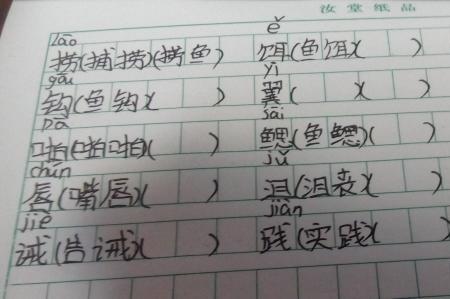 纸品
lāo ě
捞(捕捞)(捞鱼) 饵(鱼饵)( )
gōu yì
钩(鱼钩)( ) 翼( )( )
pā sāi
啪(啪啪)( ) 鳃(鱼鳃)( )
chún jǔ
唇(嘴唇)( ) 沮(沮丧)( )
jiè jiàn
诫(告诫)( ) 践(实践)( )